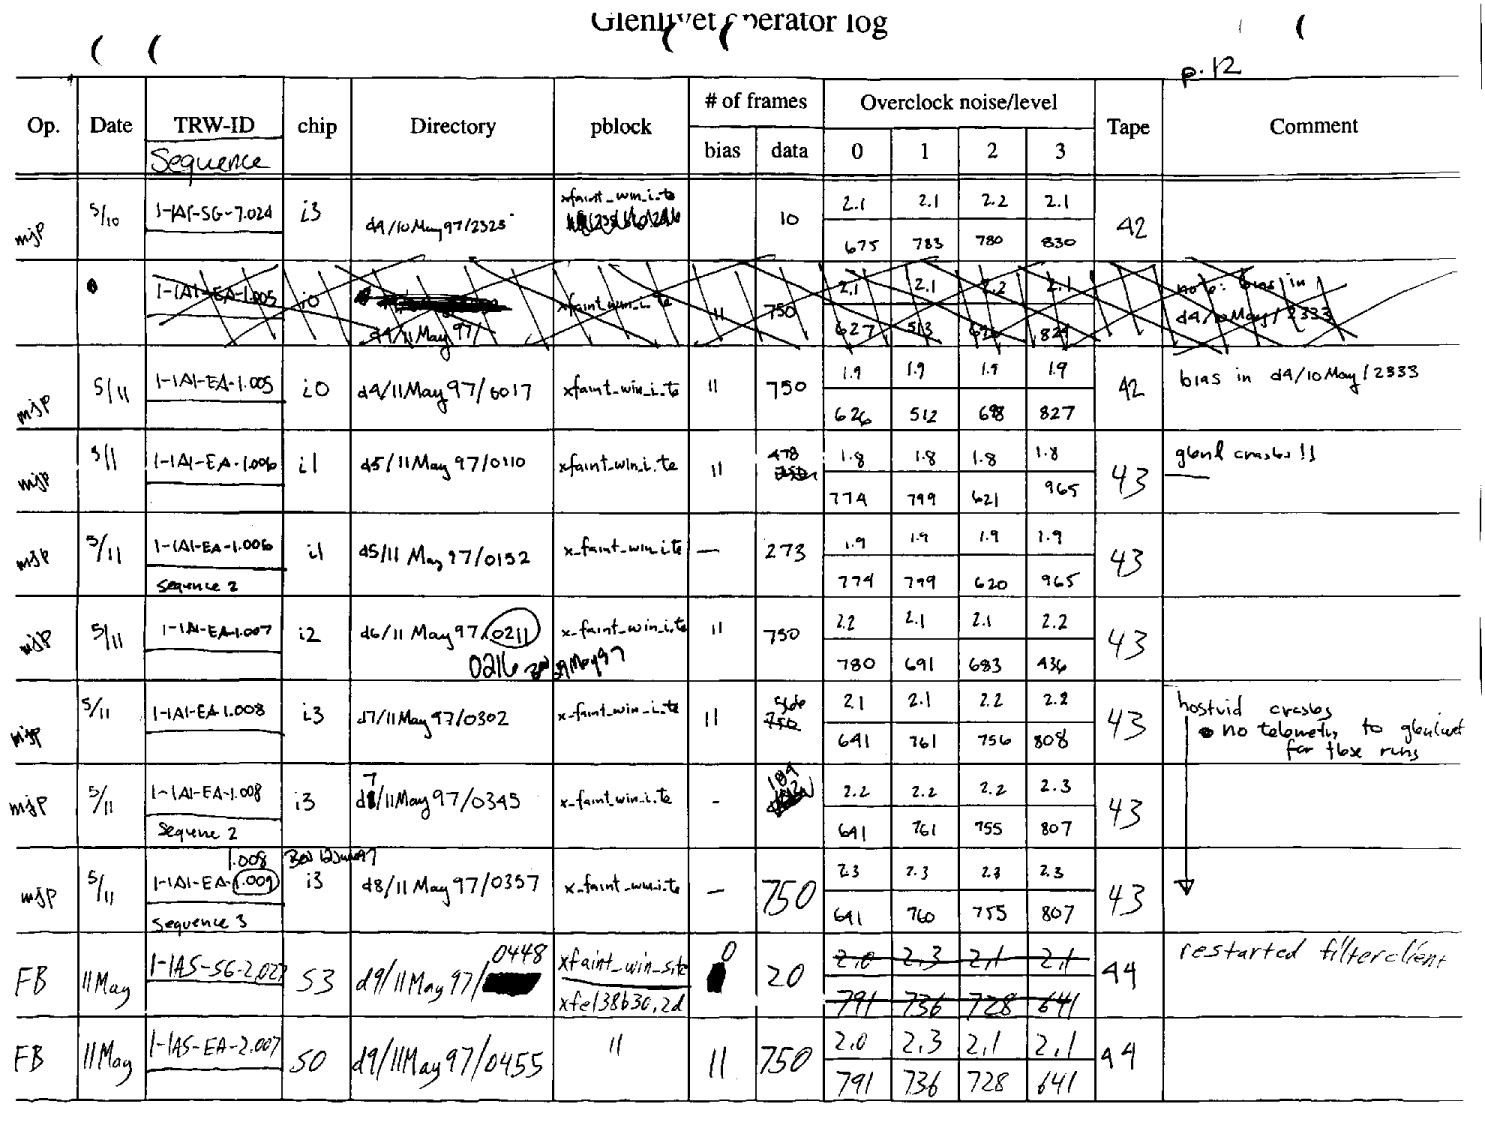 Glenlivet operator log
p.12
Op. Date TRW-ID chip Directory pblock # of frames Overclock noise/level Tape Comment
Sequence bias data 0 1 2 3
mjp 5/10 1-IAI-SG-7.024 i3 d9/10May97/2325 xfaint_win_i.te 10 2.1 2.1 2.2 2.1 42
675 783 780 830
1-IAI-EA-1.005 i0 xfaint_win_i.te 11 750 2.1 2.1 2.2 2.1 note: bias in
d4/11May97/ 627 513 829 d4/10May/2333
mjp 5/11 1-IAI-EA-1.005 i0 d4/11May97/0017 xfaint_win_i_te 11 750 1.9 1.9 1.9 1.9 42 bias in d4/10May/2333
626 512 618 827
mjp 5/11 1-IAI-EA-1.006 i1 d5/11May97/0110 xfaint_win_i.te 11 478 1.8 1.8 1.8 1.8 43 glenl crashes!!
774 799 621 965
mjp 5/11 1-IAI-EA-1.006 i1 d5/11 May 97/0152 x-faint-win i te — 273 1.9 1.9 1.9 1.9 43
Sequence 2 774 799 620 965
mjp 5/11 1-IAI-EA-1.007 i2 d6/11 May 97/0211 x-faint-win_i_te 11 750 2.2 2.1 2.1 2.2 43
0216 29May97 780 691 683 436
mjp 5/11 1-IAI-EA-1.008 i3 d7/11May97/0302 x-faint-win_i_te 11 750 2.1 2.1 2.2 2.2 43 hostvid crashes
no telemetry to glenlivet
for these runs
641 761 756 808
mjp 5/11 1-IAI-EA-1.008 i3 d7/11May97/0345 x-faint_win_i.te - 189 2.2 2.2 2.2 2.3 43
Sequence 2 641 761 755 807
1.008 12Jun97
mjp 5/11 1-IAI-EA-1.009 i3 d8/11May97/0357 x-faint-win_i.te — 750 2.3 2.3 2.3 2.3 43
Sequence 3 641 760 755 807
FB 11May 1-IAS-SG-2.027 S3 d9/11May97/0448 xfaint_win_site 0 20 2.0 2.3 2.1 2.1 44 restarted filterclient
xfe138b30.2d 791 736 728 641
FB 11May 1-IAS-EA-2.007 S0 d9/11May97/0455 11 11 750 2.0 2.3 2.1 2.1 44
791 736 728 641